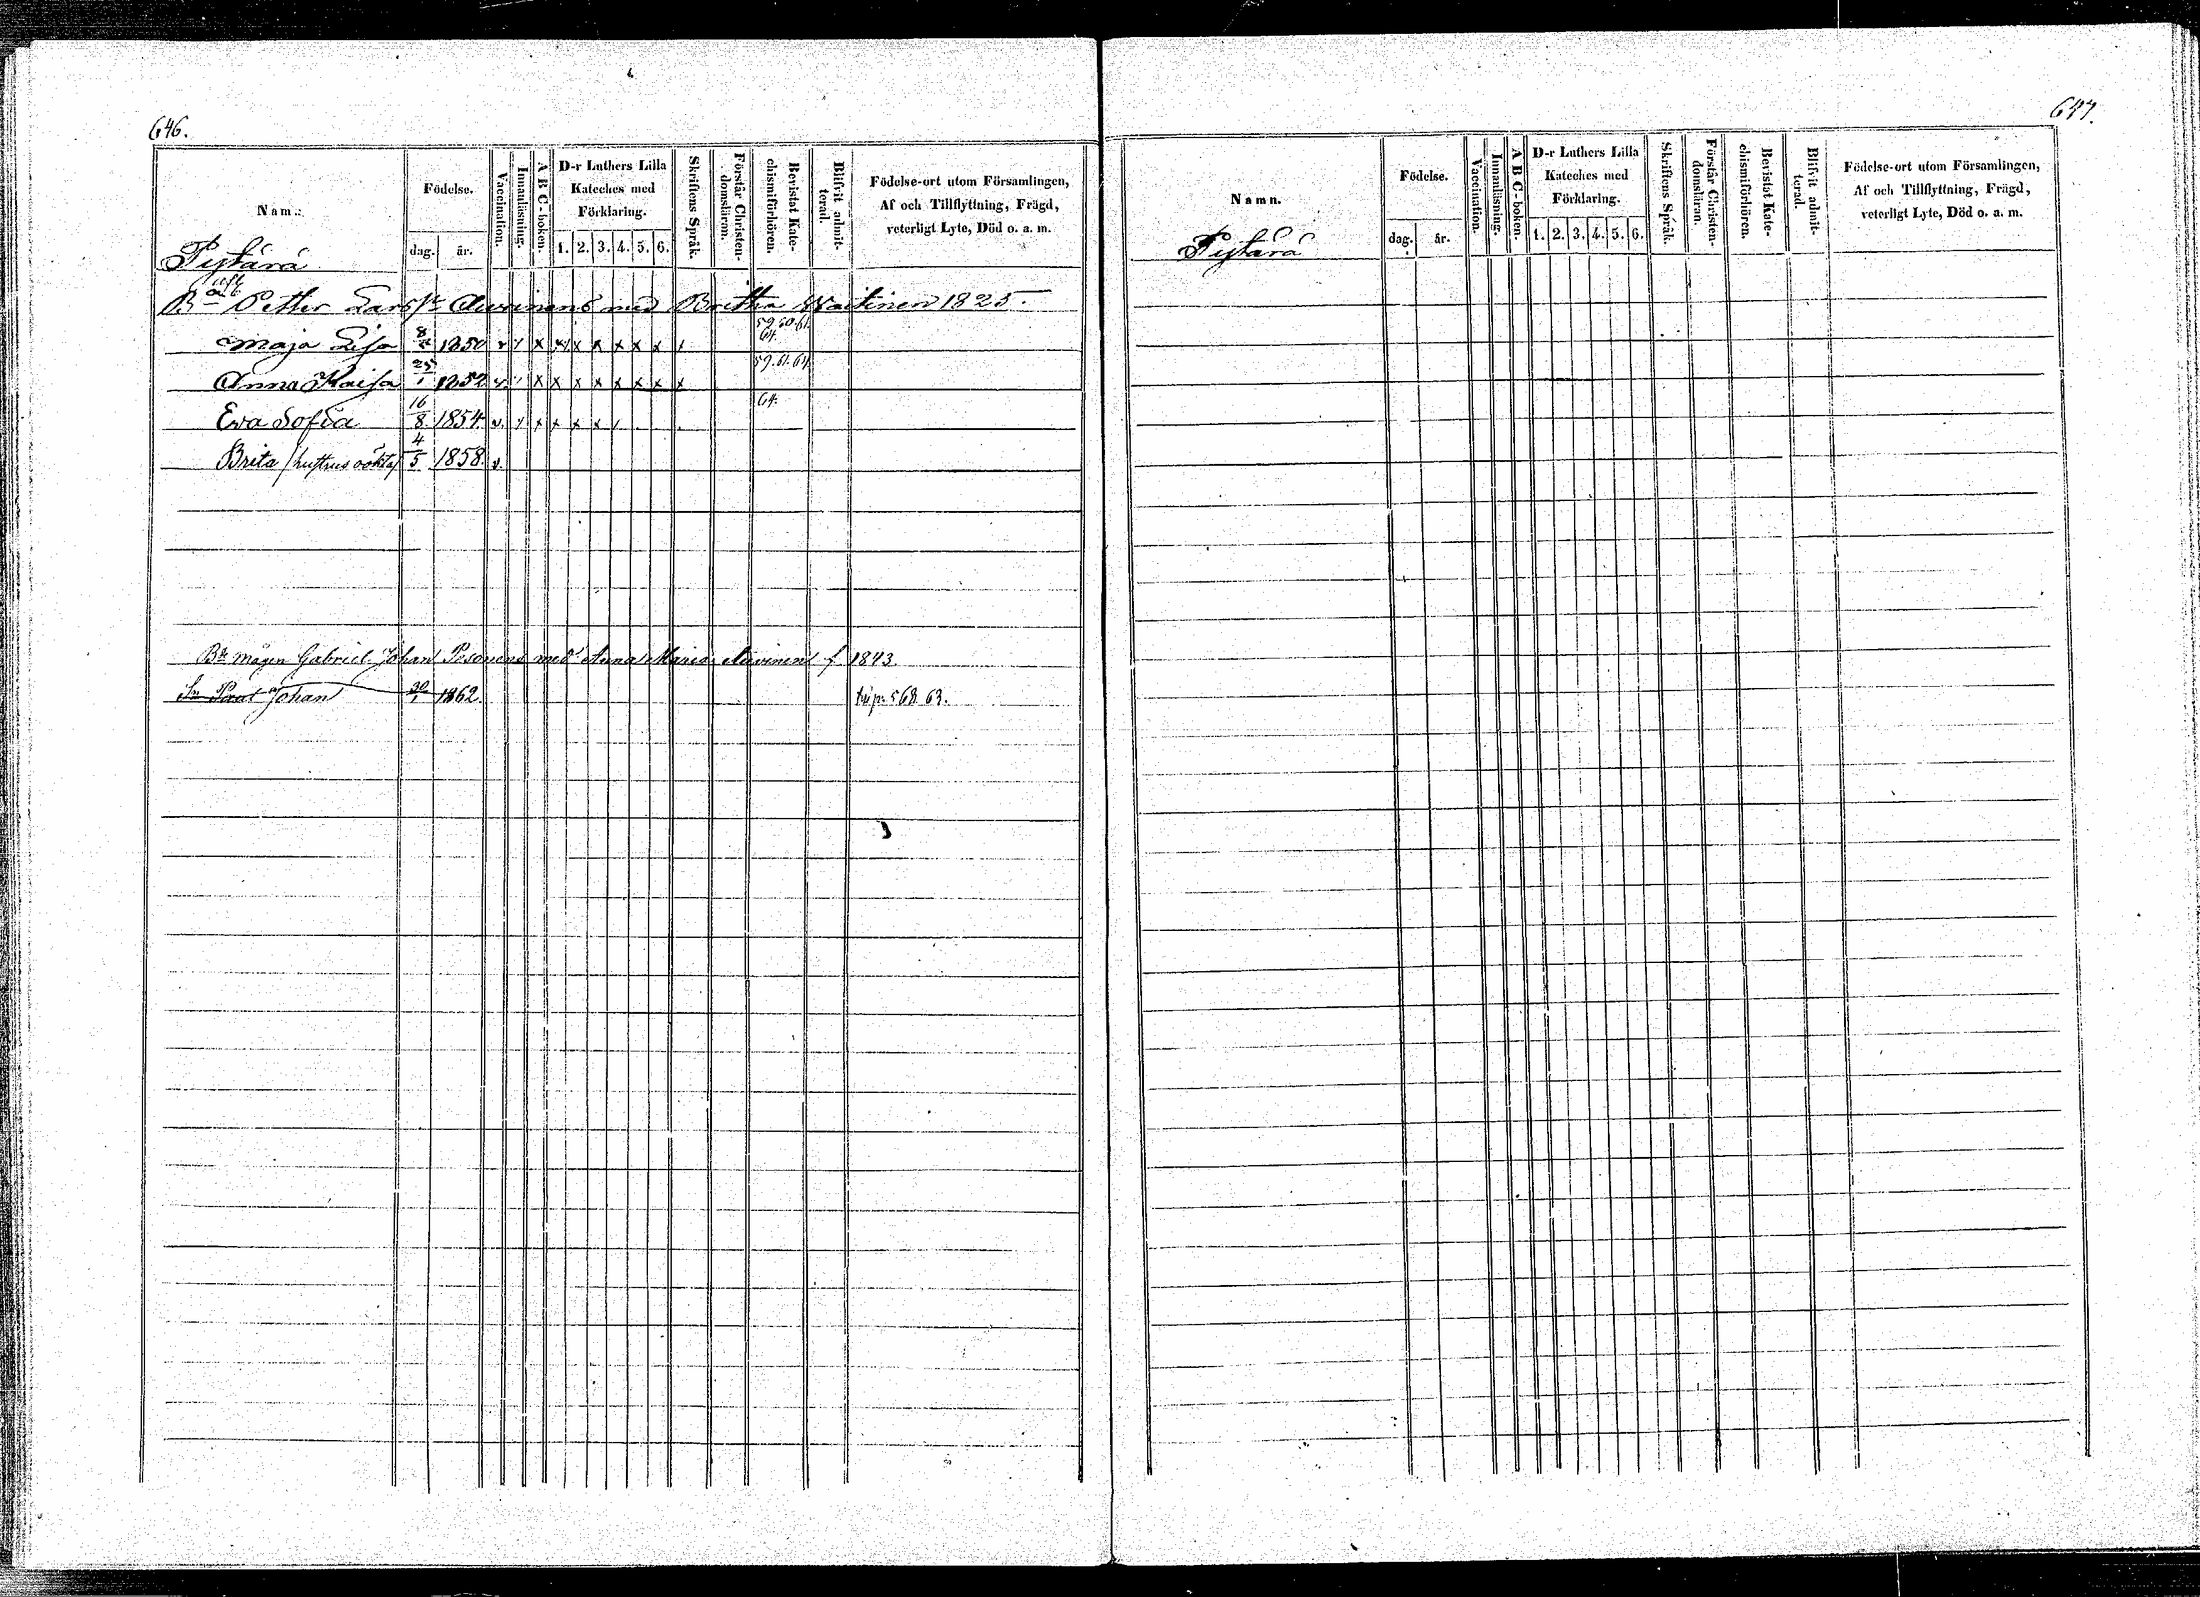 646.
Namn.
Födelse.
dag. år.
Vaccination.
Innanläsning.
A B C-boken.
D-r Luthers Lilla
Kateches med
Förklaring.
1. 2. 3. 4. 5. 6.
Skriftens Språk.
Förstår Christen-
domsläran.
Bevistat Kate-
chismiförhören.
Blifvit admit-
terad.
Födelse-ort utom Församlingen,
Af och Tillflyttning, Frägd,
veterligt Lyte, Död o. a. m.
Pistärä
Petter Lars Auvinens med Britha Waitinen 1825.
Maja Lisa 8 1850 v x x x x x x x x 59. 60. 61. 64.
Anna Kaisa 25/1 1852 v x x x x x x x x 59. 61. 64.
Eva Sofia 16/8 1854 v. x x x x 64.
Brita /hustrus oökta/ 4/5 1858. v.
Bds mågen Gabriel Johan Pesonens med Anna Maria Auvinen f. 1843.
Sn Paul Johan 30/1 1862. 568. 63.
647.
Namn.
Födelse.
dag. år.
Vaccination.
Innanläsning.
A B C-boken.
D-r Luthers Lilla
Kateches med
Förklaring.
1. 2. 3. 4. 5. 6.
Skriftens Språk.
Förstår Christen-
domsläran.
Bevistat Kate-
chismiförhören.
Blifvit admit-
terad.
Födelse-ort utom Församlingen,
Af och Tillflyttning, Frägd,
veterligt Lyte, Död o. a. m.
Pistärä